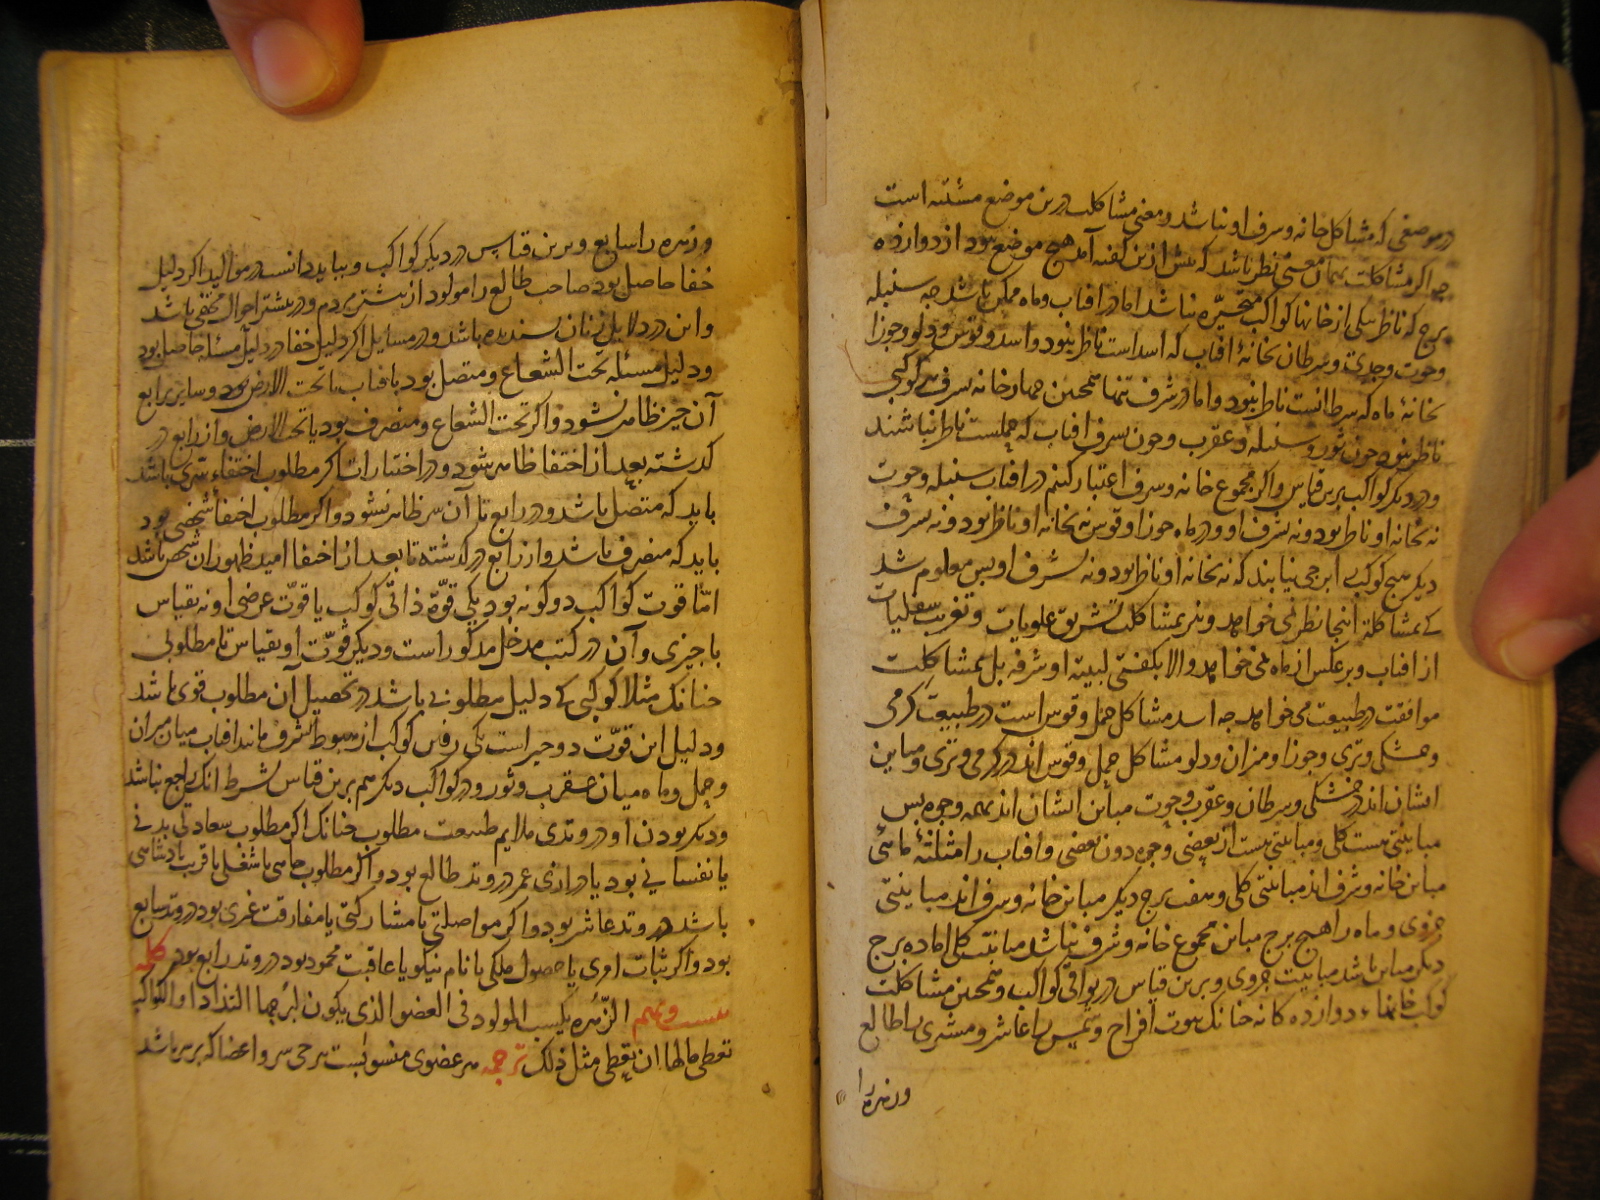 در موضعی که مشاکل خانه و شرف او نباشد و معنی مشاکلت درین موضع مشتبه است
چه اگر مشاکلت بهمان معنی نظر باشد که پیش ازین گفته آمد هیچ موضع نبود از دوازده
برج که ناظر بیکی از خانها کواکب متحیّره نباشد اما در افتاب و ماه ممکن باشد چه سنبله
و حوت و جدی و سرطان بخانهٔ افتاب که اسد است ناظر نبود و اسد و قوس و دلو و جوزا
بخانهٔ ماه که سرطانست ناظر نبود و اما در شرف تنها همچنین چهار خانه بشرف هر کوکبی
ناظر نبود چون ثور و سنبله و عقرب و حوت بشرف افتاب که حملست ناظر نباشند
و در دیگر کواکب برین قیاس و اگر مجموع خانه و شرف اعتبار کنیم در افتاب سنبله و حوت
نه بخانه او ناظر بود و نه بشرف او و در ماه جوزا و قوس نه بخانه او ناظر بود و نه بشرف
دیگر هیچ کوکب را برجی نیابند که نه بخانه او ناظر بود و نه بشرف او پس معلوم شد
که بمشاکلة اینجا نظر نمی خواهد و نیز بمشاکلت تشریق علویات و تغریب سفلیات
از افتاب و بر عکس از ماه نمی خواهد والا بگفتی لبیته او شرفه بل بمشاکلت
موافقت در طبیعت می خواهد چه اسد مشاکل حمل و قوس است در طبیعت گرمی
و خشکی و نری و جوزا و میزان و دلو مشاکل حمل و قوس اند در گرمی و نری و مباین
ایشان اند در خشکی و سرطان و عقرب و حوت مباین ایشان اند بهمه وجوه پس
مباینتی هست کلی و مباینتی هست از بعضی وجوه دون بعضی و افتاب را مثلثهٔ مائی
مباین خانه و شرف اند مباینتی کلی و هفت برج دیگر مباین خانه و شرف اند مباینتی
جزوی و ماه را هیچ برج مباین مجموع خانه و شرف نباشد مباینت کلی اما ده برج
دیگر مباین باشد مباینت جزوی و برین قیاس در بواقی کواکب و همچنین مشاکلت
کوکب خانهاء دوازده کانه چنانک بیوت افراح و شمس را عاشر و مشتری را طالع
و زهره را
و زهره را سابع و برین قیاس در دیگر کواکب و بباید دانست در موالید اگر دلیل
خفا حاصل بود صاحب طالع را مولود از بیشتر مردم و در بیشتر احوال مختفی باشد
و این در دلایل زنان پسندیده باشد و در مسایل اگر دلیل خفا در دلیل مسئله حاصل بود
و دلیل مسئله تحت الشعاع و متصل بود بافتاب یا تحت الارض بود و سایر برابع
آن چیز ظاهر نشود و اگر تحت الشعاع و منصرف بود یا تحت الارض و از رابع در
گذشته بعد از اختفا ظاهر شود و در اختیارات اگر مطلوب اختفاء سرّی باشد
باید که متصل باشد و در رابع تا آن سر ظاهر نشود و اگر مطلوب اختفا شخصی بود
باید که منصرف باشد و از رابع در گذشته تا بعد از اختفا امید ظهور آن شخص باشد
امّا قوت کواکب دو کونه بود یکی قوّة ذاتی کوکب یا قوّت عرضی او نه بقیاس
با چیزی و آن در کتب مدخل مذکور است و دیگر قوّت او بقیاس تا مطلوبی
چنانک مثلا کوکبی که دلیل مطلوبی باشد در تحصیل آن مطلوب قوی باشد
و دلیل این قوّت دو چیز است یکی رفتن کوکب از هبوط بشرف مانند افتاب میان میزان
و حمل و ماه میان عقرب و ثور و در کواکب دیگر هم برین قیاس بشرط انک راجع نباشد
و دیگر بودن او در وتدی ملایم طبیعت مطلوب چنانک اگر مطلوب سعادتی بدنی
یا نفسانی بود یا درازی عمر در وتد طالع بود و اگر مطلوب جاهی یا شغلی یا قربت پادشاهی
باشد در وتد عاشر بود و اگر مواصلتی یا مشارکتی یا مفارقت غیری بود در وتد سابع
بود و اگر ثبات امری یا حصول ملکی یا نام نیکو یا عاقبت محمود بود در وتد رابع بود کلمه
بیست و نهم الزّهره یکسب المولود فی العضو الذی یکون لبرجها التذاذا و الکواکب
تعطی مالها ان یعطی مثل ذلک ترجمه هر عضوی منسوبست ببرجی سر و اعضا که بر سر باشد